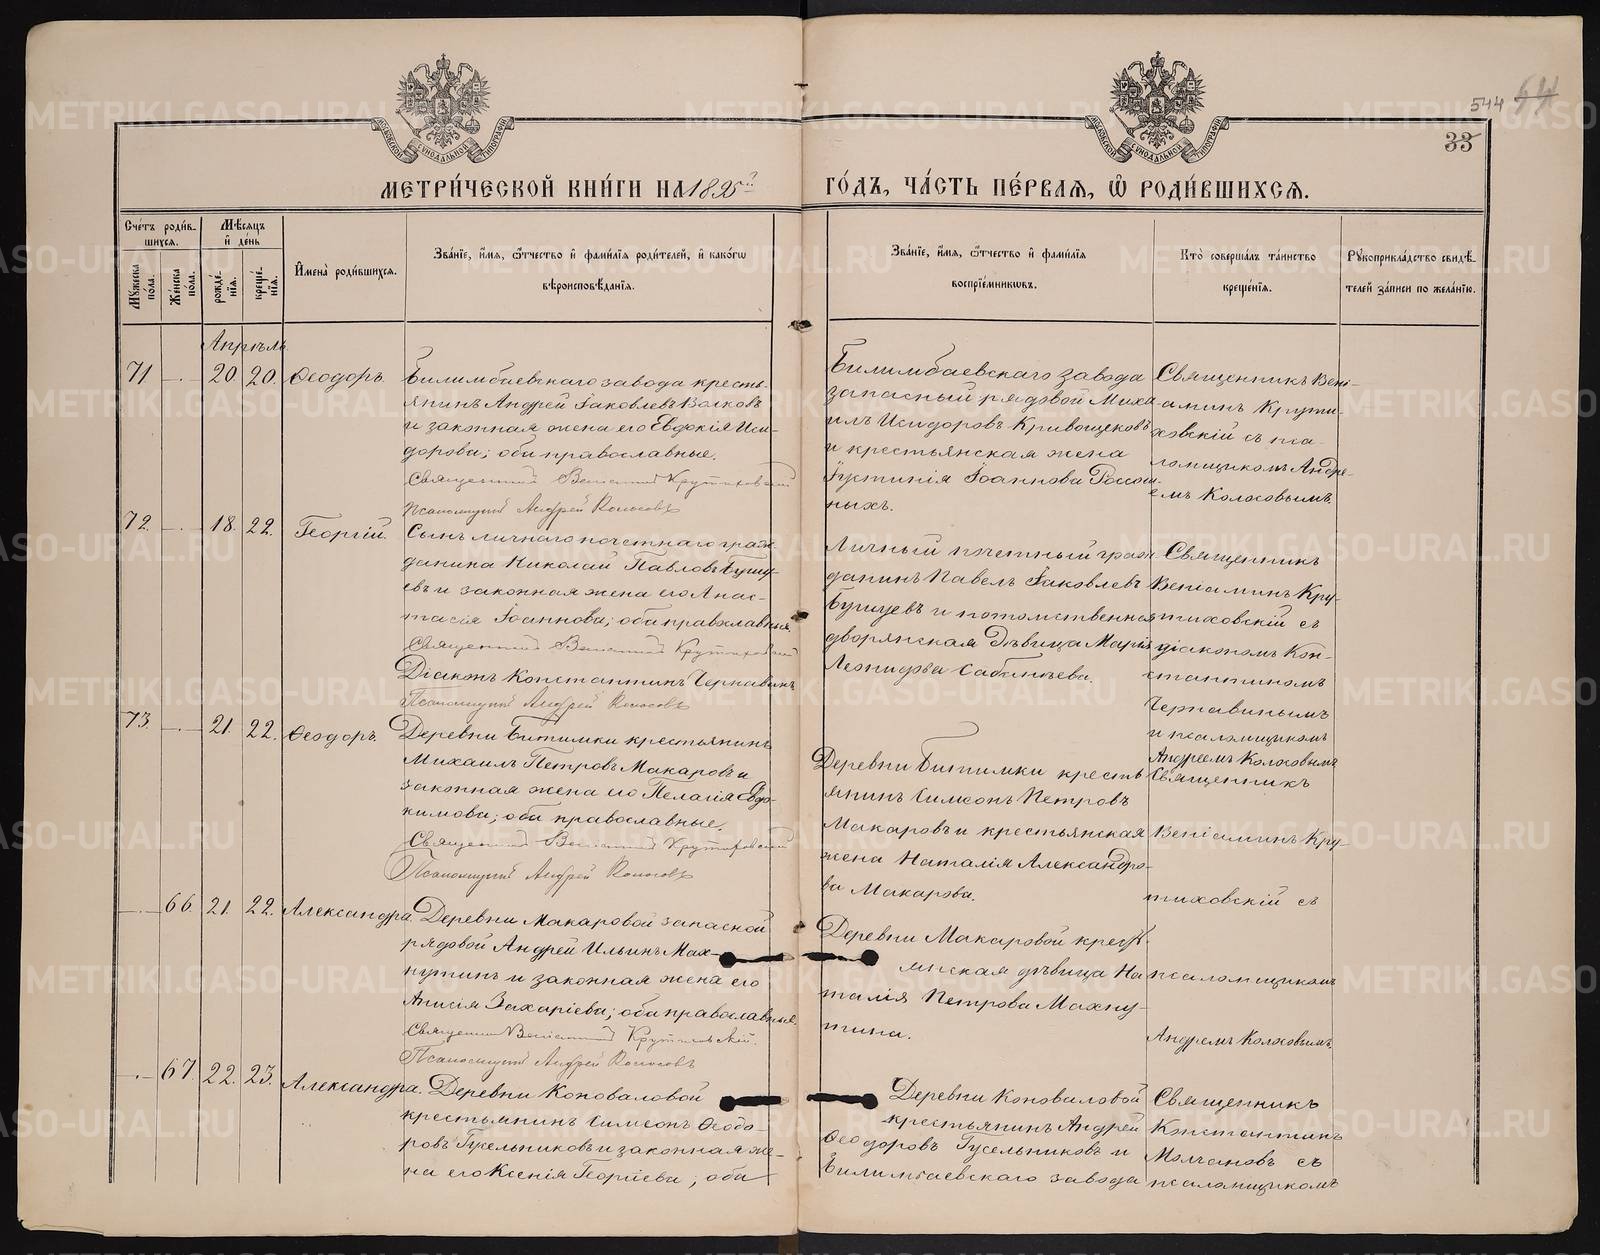 544 54
33
МОСКОВСКОЙ СѴНОДАЛЬНОЙ ТИПОГРАФІИ
МОСКОВСКОЙ СѴНОДАЛЬНОЙ ТИПОГРАФІИ
МЕТРИ́ЧЕСКОЙ КНИ́ГИ НА 1895й ГО́ДЪ, ЧА́СТЬ ПЕ́РВАѦ, Ѽ РОДИ́ВШИХСѦ.
Сче́тъ роди́в-
шихся.
Мꙋжеска по́ла.
Же́нска по́ла.
Мѣ́сяцъ
и҆ де́нь
рожде́-нїя.
креще́-нїя.
И҆мена̀ роди́вшихся.
Зва́нїе, и҆́мя, ѻ҆́тчество и҆ фамі́лїя роди́телей, и҆ како́гѡ
вѣроисповѣ́данїя.
Зва́нїе, и҆́мя, ѻ҆́тчество и҆ фамі́лїя
воспрїе́мникѡвъ.
Кто̀ соверша́лъ та́инство
креще́нїя.
Рꙋкоприкла́дство свидѣ́-
телей за́писи по жела́нїю.
Апрѣль
71 — 20. 20. Ѳеодоръ.
Билимбаевскаго завода кресть-
янинъ Андрей Іаковлевъ Волковъ
и законная жена его Евдокія Иси-
дорова; оба православные.
Священникъ Веніаминъ Крутиховскій
Псаломщикъ Андрей Колосовъ
Билимбаевскаго завода
запасный рядовой Миха-
илъ Исидоровъ Кривощековъ
и крестьянская жена
Іустинія Іоаннова Россош-
ныхъ.
Священникъ Вені-
аминъ Крути-
ховскій съ пса-
ломщикомъ Андре-
емъ Колосовымъ.
72. — 18. 22. Георгій.
Сынъ личнаго почетнаго граж-
данина Николай Павловъ Бушу-
евъ и законная жена его Анас-
тасія Іоаннова; оба православные.
Священникъ Веніаминъ Крутиховскій
Діаконъ Константинъ Чернавинъ
Псаломщикъ Андрей Колосовъ
Личный почетный граж-
данинъ Павелъ Іаковлевъ
Бушуевъ и потомственная
дворянская дѣвица Марія
Леонидова Сабанѣева.
Священникъ
Веніаминъ Кру-
тиховскій съ
діакономъ Кон-
стантиномъ
Чернавинымъ
и псаломщикомъ
Андреемъ Колосовымъ
73. — 21. 22. Ѳеодоръ.
Деревни Битимки крестьянинъ
Михаилъ Петровъ Макаровъ и
законная жена его Пелагія Евдо-
кимова; оба православные.
Священникъ Веніаминъ Крутиховскій
Псаломщикъ Андрей Колосовъ
Деревни Битимки кресть-
янинъ Симеонъ Петровъ
Макаровъ и крестьянская
жена Наталія Александро-
ва Макарова.
Священникъ
Веніаминъ Кру-
тиховскій съ
псаломщикомъ
Андреемъ Колосовымъ.
— 66. 21. 22. Александра.
Деревни Макаровой запасной
рядовой Андрей Ильинъ Мах-
нутинъ и законная жена его
Анисія Захаріева; оба православные.
Священникъ Веніаминъ Крутиховскій.
Псаломщикъ Андрей Колосовъ
Деревни Макаровой крест-
янская дѣвица На-
талія Петрова Махну-
тина.
— 67. 22. 23. Александра.
Деревни Коноваловой
крестьянинъ Симеонъ Ѳеодо-
ровъ Гусельниковъ и законная же-
на его Ксенія Георгіева; оба
Деревни Коноваловой
крестьянинъ Андрей
Ѳеодоровъ Гусельниковъ и
Билимбаевскаго завода
Священникъ
Константинъ
Молчановъ съ
псаломщикомъ
METRIKI.GASO-URAL.RU